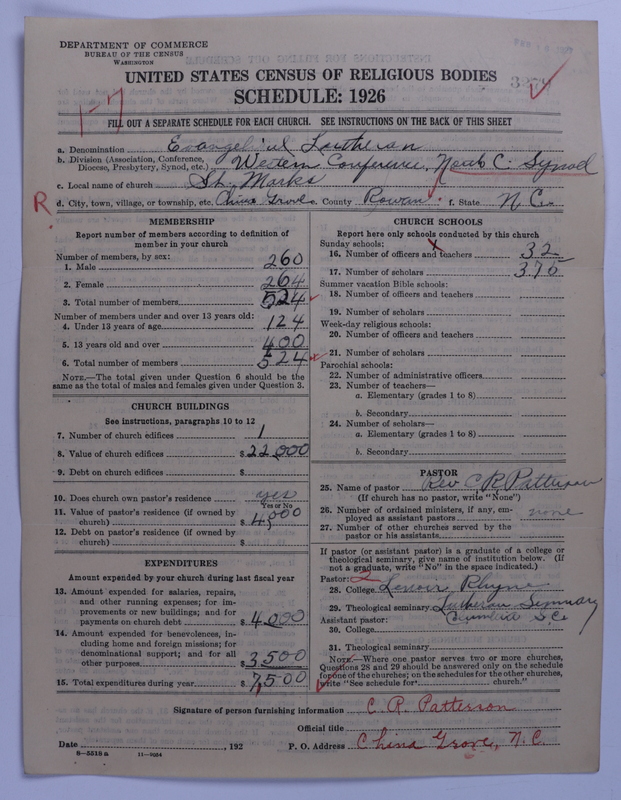 DEPARTMENT OF COMMERCE
BUREAU OF THE CENSUS
WASHINGTON
UNITED STATES CENSUS OF RELIGIOUS BODIES
SCHEDULE: 1926
1-7
FILL OUT A SEPARATE SCHEDULE FOR EACH CHURCH. SEE INSTRUCTIONS ON THE BACK OF THIS SHEET
a. Denomination Evangelical Lutheran
b. Division (Association, Conference, Diocese, Presbytery, Synod, etc.) Western Conference, North C. Synod
c. Local name of church St. Marks
R d. City, town, village, or township, etc. China Grove e. County Rowan f. State N.C.
MEMBERSHIP
Report number of members according to definition of
member in your church
Number of members, by sex:
1. Male 260
2. Female 264
3. Total number of members 524
Number of members under and over 13 years old:
4. Under 13 years of age 124
5. 13 years old and over 400
6. Total number of members 524
NOTE.—The total given under Question 6 should be the
same as the total of males and females given under Question 3.
CHURCH BUILDINGS
See instructions, paragraphs 10 to 12
7. Number of church edifices 1
8. Value of church edifices $ 22,000
9. Debt on church edifices $
10. Does church own pastor's residence yes
Yes or No
11. Value of pastor's residence (if owned by
church) $ 4,000
12. Debt on pastor's residence (if owned by
church) $
EXPENDITURES
Amount expended by your church during last fiscal year
13. Amount expended for salaries, repairs,
and other running expenses; for im-
provements or new buildings; and for
payments on church debt $ 4,000
14. Amount expended for benevolences, in-
cluding home and foreign missions; for
denominational support; and for all
other purposes $ 3500
15. Total expenditures during year $ 7,500
CHURCH SCHOOLS
Report here only schools conducted by this church
Sunday schools:
16. Number of officers and teachers 32
17. Number of scholars 376
Summer vacation Bible schools:
18. Number of officers and teachers
19. Number of scholars
Week-day religious schools:
20. Number of officers and teachers
21. Number of scholars
Parochial schools:
22. Number of administrative officers
23. Number of teachers—
a. Elementary (grades 1 to 8)
b. Secondary
24. Number of scholars—
a. Elementary (grades 1 to 8)
b. Secondary
PASTOR
25. Name of pastor Rev C R Patterson
(If church has no pastor, write "None")
26. Number of ordained ministers, if any, em-
ployed as assistant pastors none
27. Number of other churches served by the
pastor or his assistants
If pastor (or assistant pastor) is a graduate of a college or
theological seminary, give name of institution below. (If
not a graduate, write "No" in the space indicated.)
Pastor: 2
28. College Lenoir Rhyne
29. Theological seminary Lutheran Seminary
Assistant pastor: Columbia S.C.
30. College
31. Theological seminary
NOTE.—Where one pastor serves two or more churches,
Questions 28 and 29 should be answered only on the schedule
for one of the churches; on the schedules for the other churches,
write "See schedule for church."
Signature of person furnishing information C. R. Patterson
Official title
Date , 192 P. O. Address China Grove, N.C.
8—5518a 11—9034